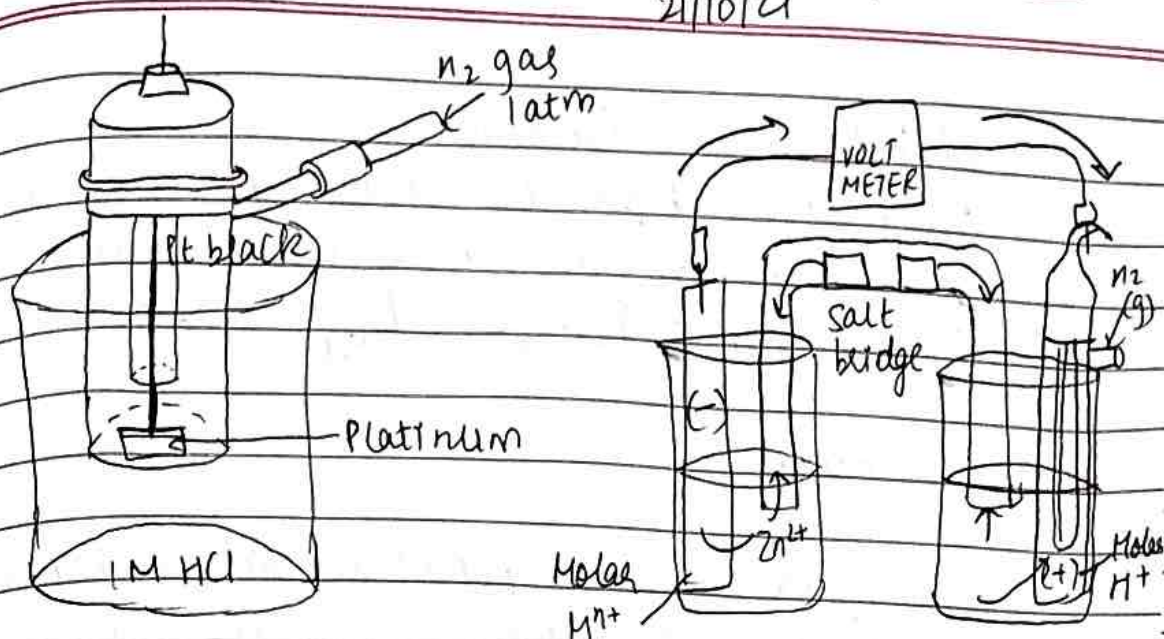 21/10/21
n2 gas
1atm
Pt black
Platinum
1M HCl
VOLT
METER
n2
(g)
salt
bridge
(-)
Zn2+
Molar
Mn+
(+)
Molar
H+